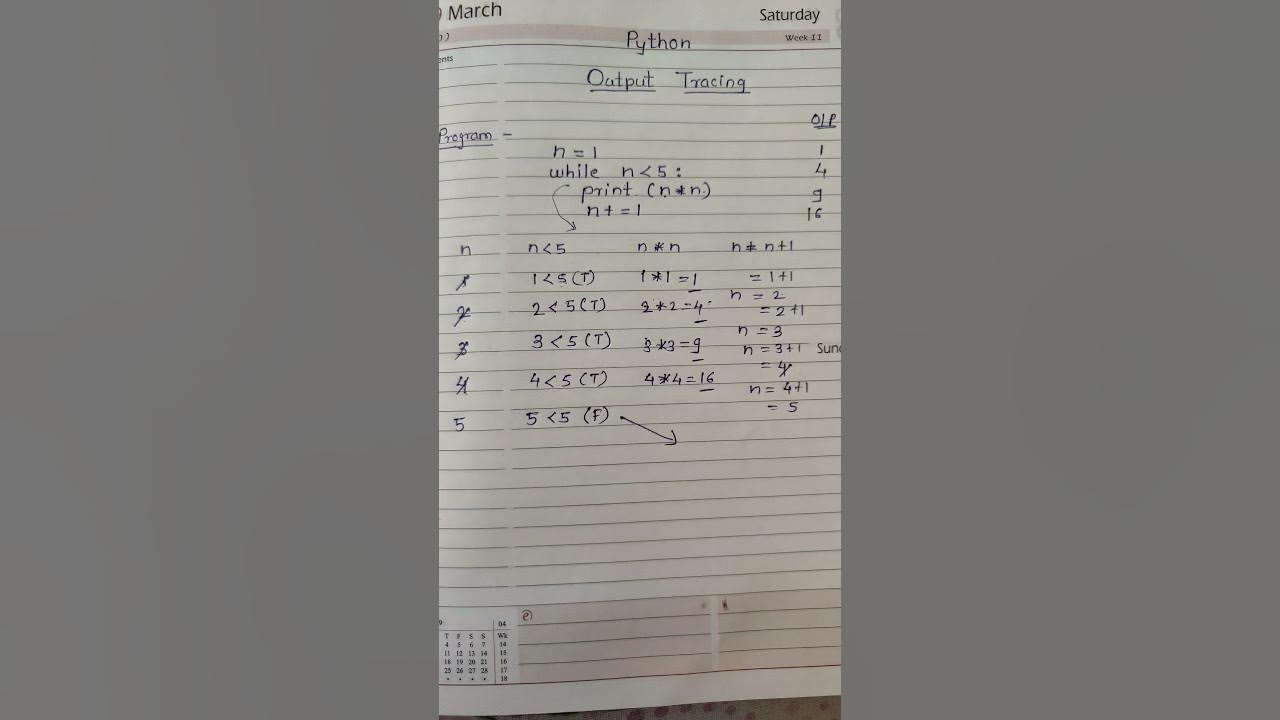 March Saturday
Week 11
ents
Python
Output Tracing
O/P
Program -
n = 1 1
while n < 5 : 4
print (n*n) 9
n+ = 1 16
n n<5 n * n n = n+1
1 1 < 5 (T) 1 * 1 = 1 = 1+1
n = 2
2 2 < 5 (T) 2 * 2 = 4 = 2+1
n = 3
3 3 < 5 (T) 3 * 3 = 9 n = 3+1 Sun
= 4
4 4 < 5 (T) 4 * 4 = 16 n = 4+1
= 5
5 5 < 5 (F)
e)
9 04
T F S S Wk
4 5 6 7 14
11 12 13 14 15
18 19 20 21 16
25 26 27 28 17
• • • • 18